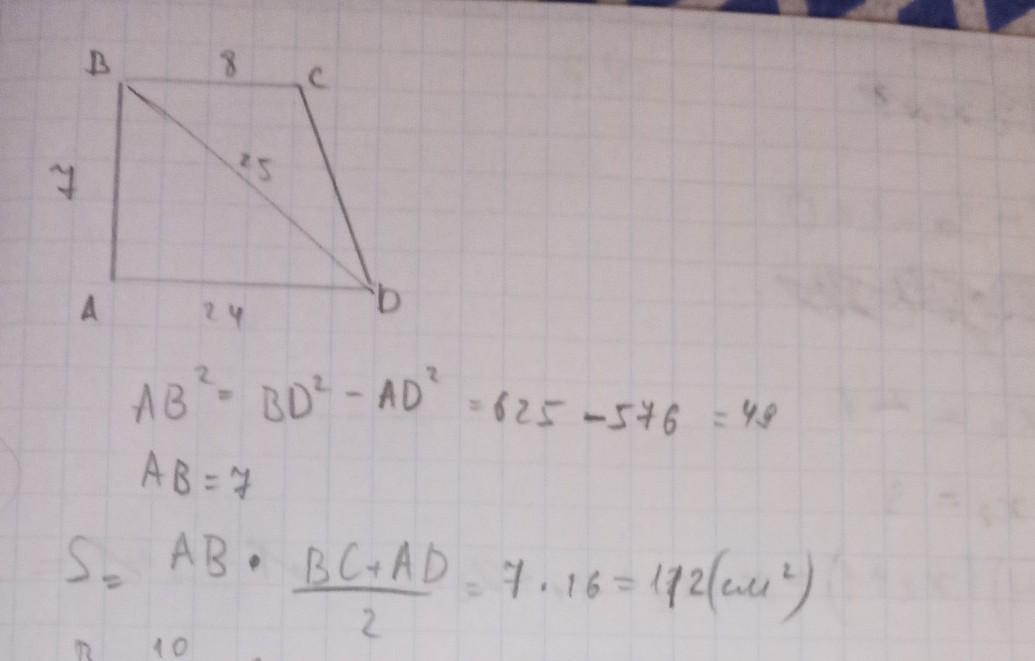 B 8 C
7 25
A 24 D
AB² = BD² - AD² = 625 - 576 = 49
AB = 7
S = AB · (BC + AD)/2 = 7 · 16 = 112 (см²)
B 10